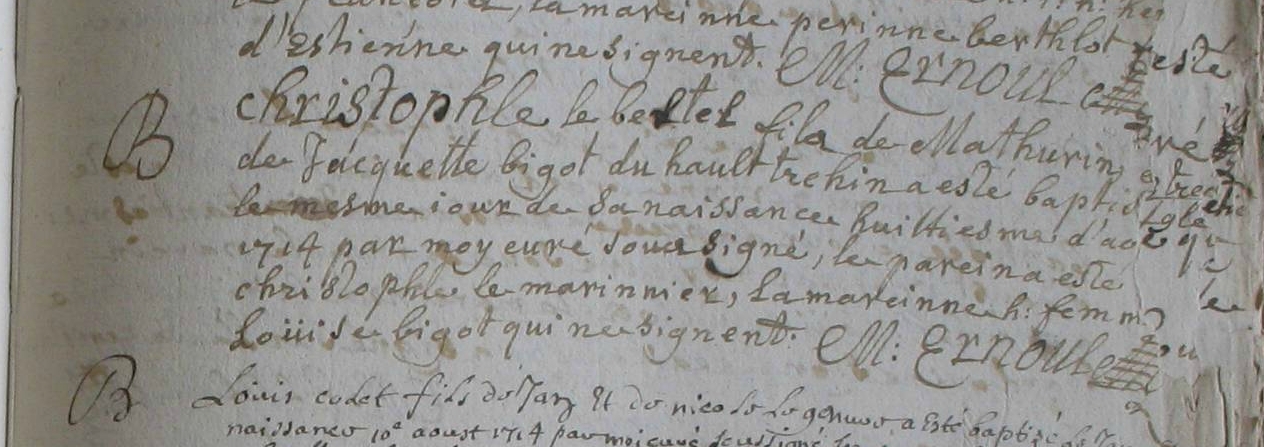 la mareinne perinne berthlot
d'Estienne qui ne signent. M: ERNOUL esté
B christophle le bestel fils de Mathurin
de Jacquette bigot du hault trehin a esté baptisé
le mesme iour de sa naissance huittiesme d'aoť
1714 par moy curé soussigné, le parein a esté
christophle le marinnier, la mareinne h: femme
Loüise bigot qui ne signent. M: ERNOUL
B Loüis codet fils de Jan Et de nicole a Esté baptisé
naissance 10e aoust 1714 par moi curé soussigné